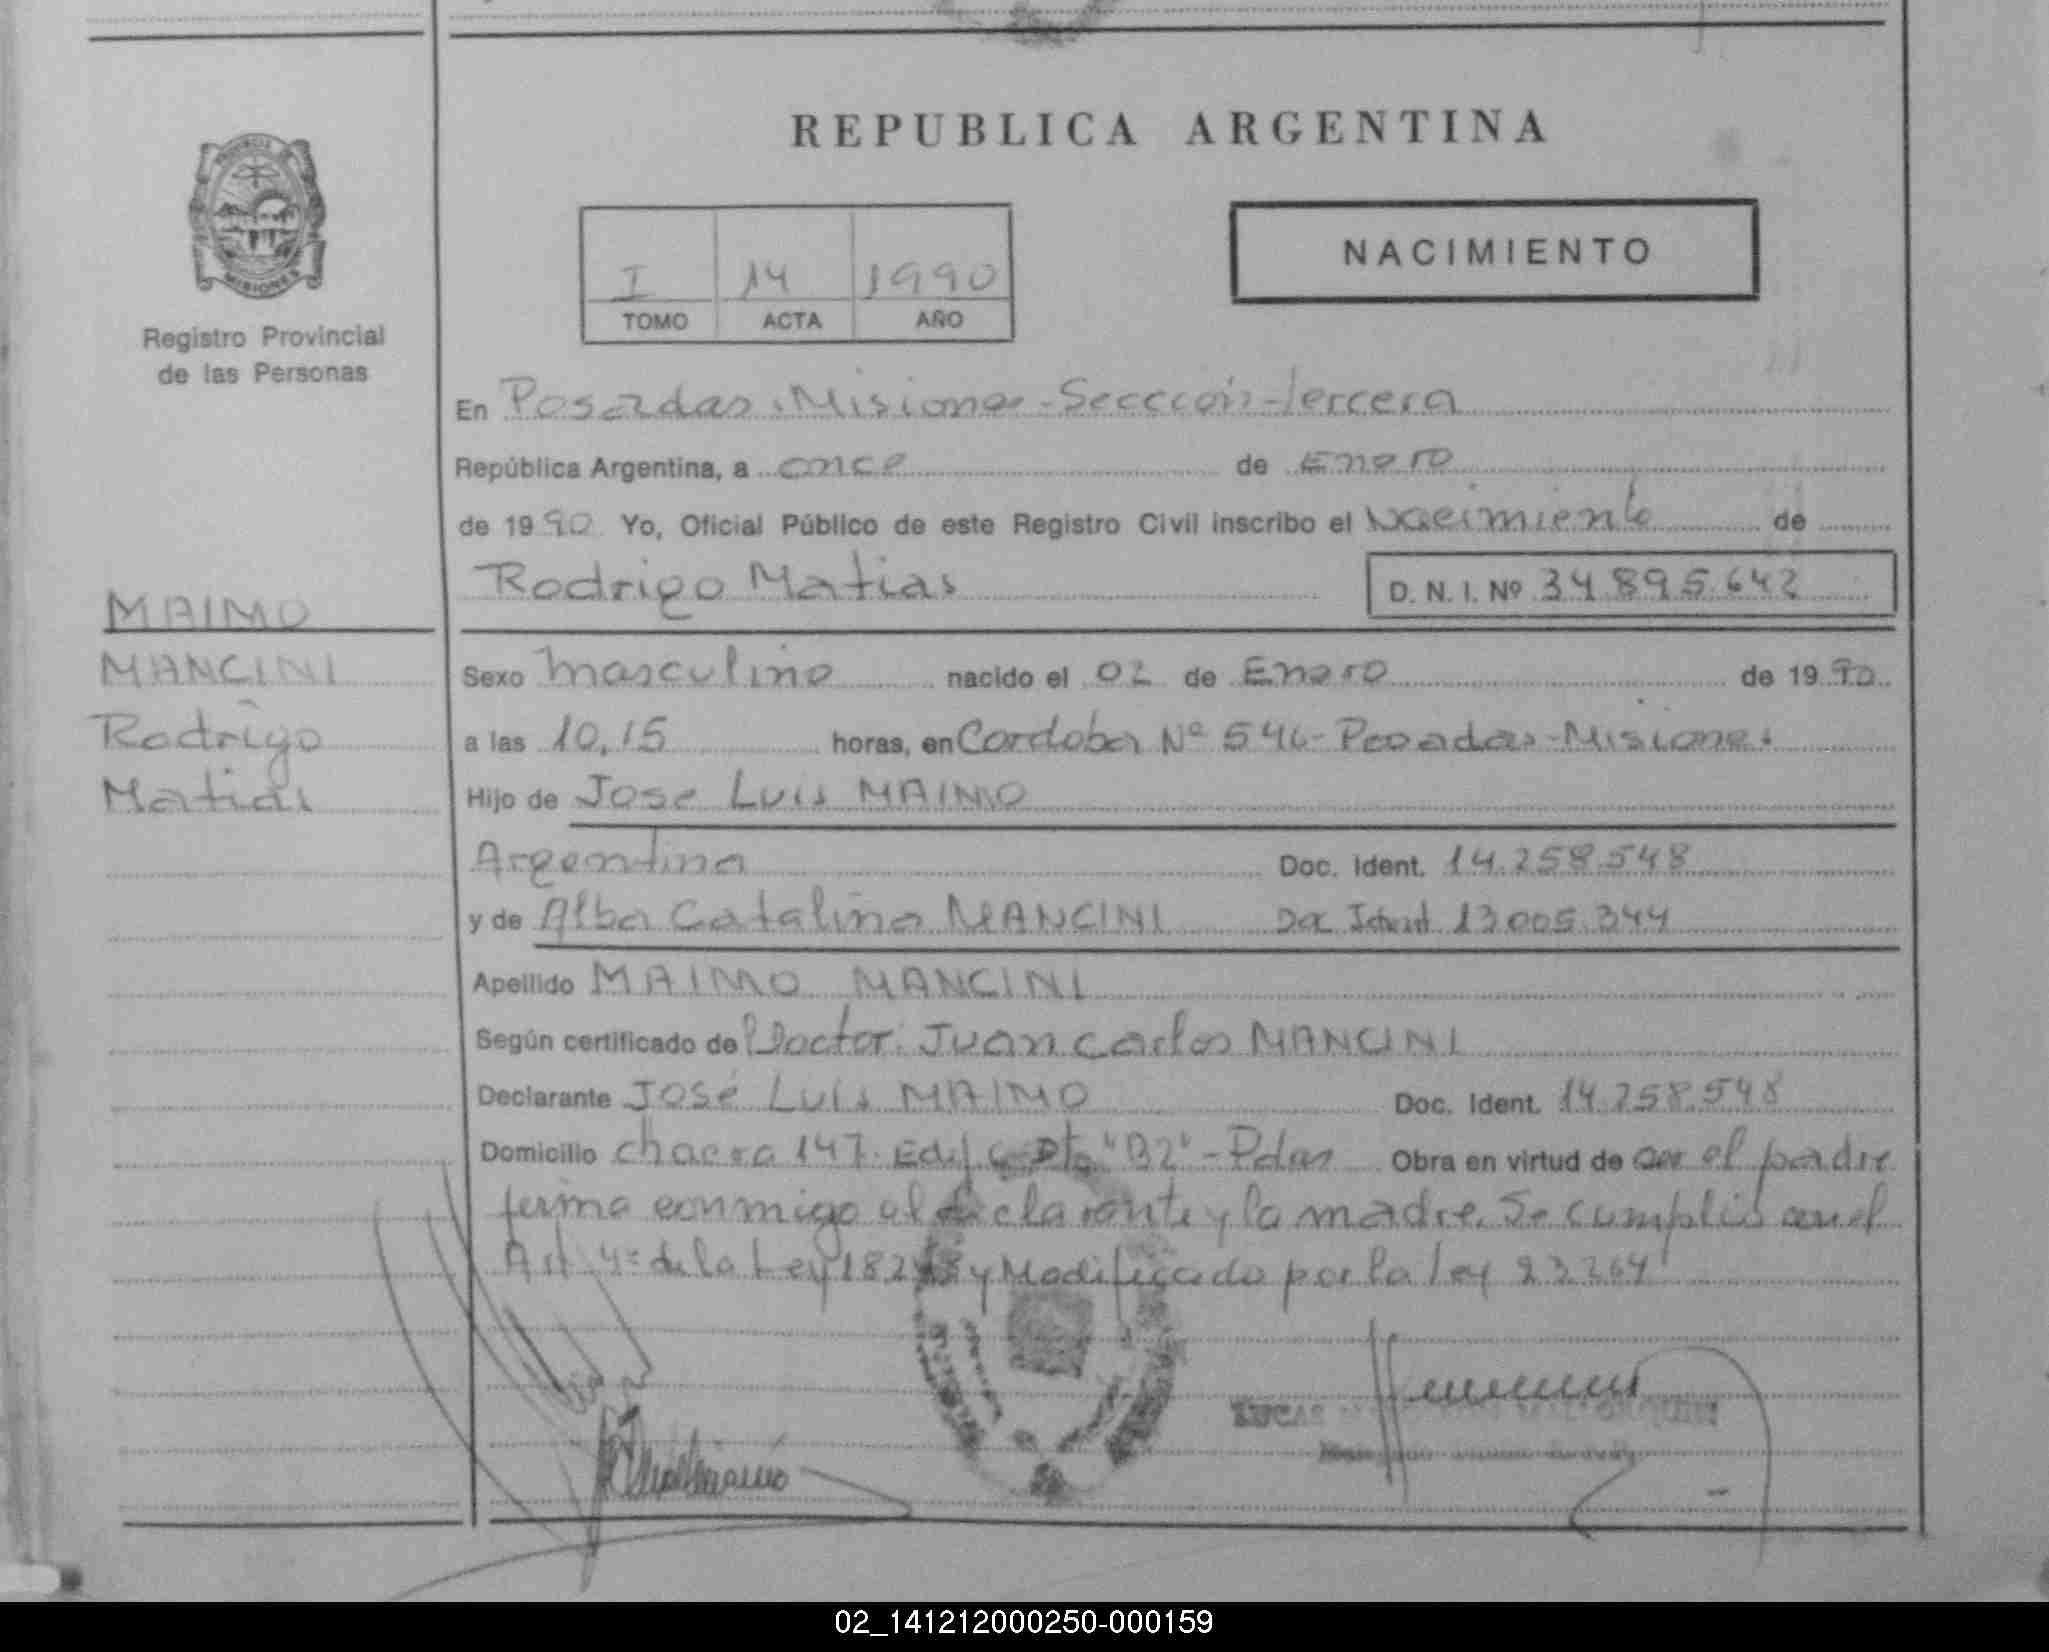 REPUBLICA ARGENTINA
PROVINCIA DE
MISIONES
Registro Provincial
de las Personas
I 14 1990
TOMO ACTA AÑO
NACIMIENTO
En Posadas Misiones - Seccción - Tercera
República Argentina, a once de Enero
de 1990 Yo, Oficial Público de este Registro Civil inscribo el Nacimiento de
Rodrigo Matias D. N. I. Nº 34 895.642
MAIMO
MANCINI
Rodrigo
Matias
Sexo masculino nacido el 02 de Enero de 1990
a las 10,15 horas, en Cordoba Nº 546 - Posadas - Misiones
Hijo de Jose Luis MAIMO
Argentina Doc. Ident. 14.258.548
y de Alba Catalina MANCINI Doc Ident 13 005.344
Apellido MAIMO MANCINI
Según certificado de Doctor Juan Carlos MANCINI
Declarante José Luis MAIMO Doc. Ident. 14.258.548
Domicilio chacra 147. Edif C Dto "B2" - Pdas Obra en virtud de ser el padre
firma conmigo el declarante y la madre. Se cumplió con el
Art 4º de la Ley 18248 y Modificado por la ley 23264
LUCAS
02_141212000250-000159